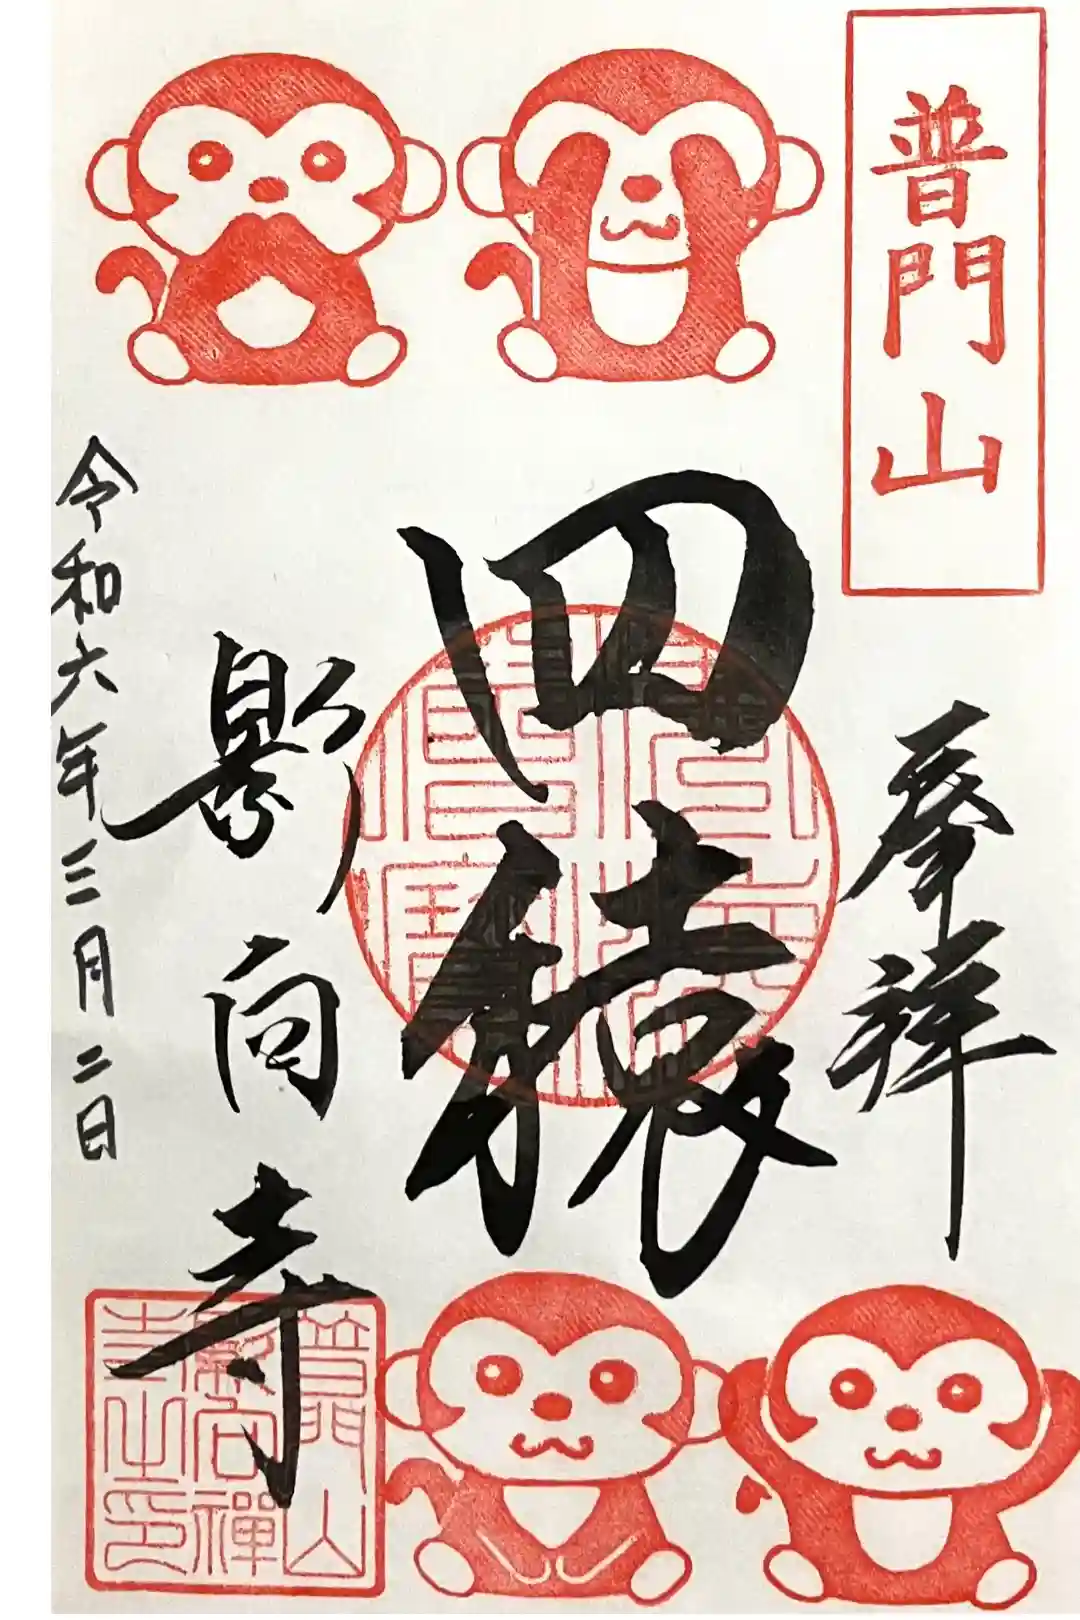 普門山
奉拝
四猿
影向寺
令和六年三月二日
普門山
影向禪
寺之印